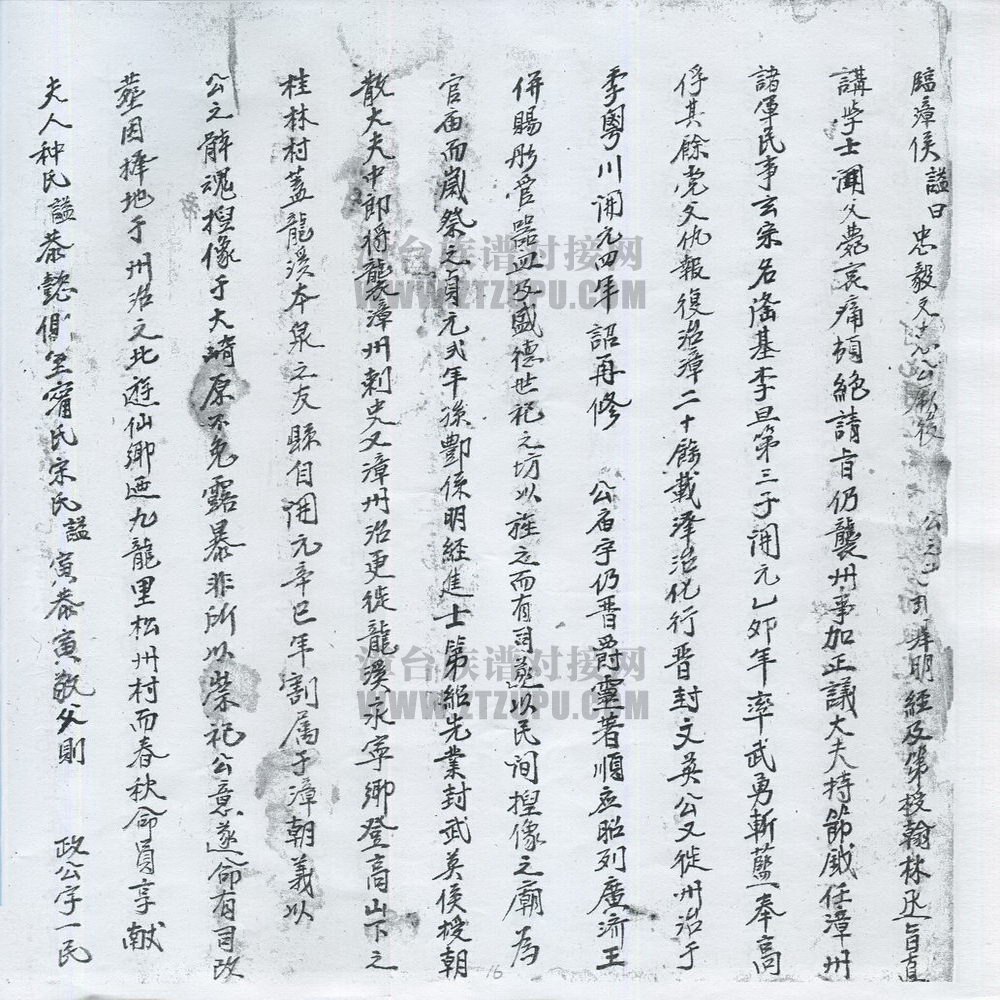 臨漳侯 謚曰忠毅文惠公 公之子珦舉明經及第授翰林丞旨直
講學士聞父薨哀痛頓絕請旨仍襲州事加正議大夫持節鉞任漳州
諸軍民事玄宋名隆基李旦第三子開元乙卯年率武勇斬藍奉高
俘其餘党父仇報復治漳二十餘載澤洽化行晉封文英公又徙州治于
李粵川開元四年詔再修 公庙宇仍晋爵靈著順应昭列廣濟王
併賜彤管器皿及盛德世祀之坊以旌之而有司遂以民间捏像之廟為
官庙而歲祭之貞元弍年孫酆係明經進士第紹先業封武英侯授朝
散大夫中郎将襲漳州刺史又漳州治更徙龍溪永寧鄉登高山下之
桂林村蓋龍溪本泉之友縣自開元辛巳年割属于漳朝義以
公之觧魂捏像于大峙原不免露暴非所以崇祀公意遂命有司改
塟因擇地于州治之北遊仙鄉迊九龍里松州村而春秋命員享献
夫人种氏謚恭懿側室甯氏宋氏謚寅恭寅敬父則 政公字一民
16
漳台族谱对接网
WWW.ZTZUPU.COM
漳台族谱对接网
WWW.ZTZUPU.COM